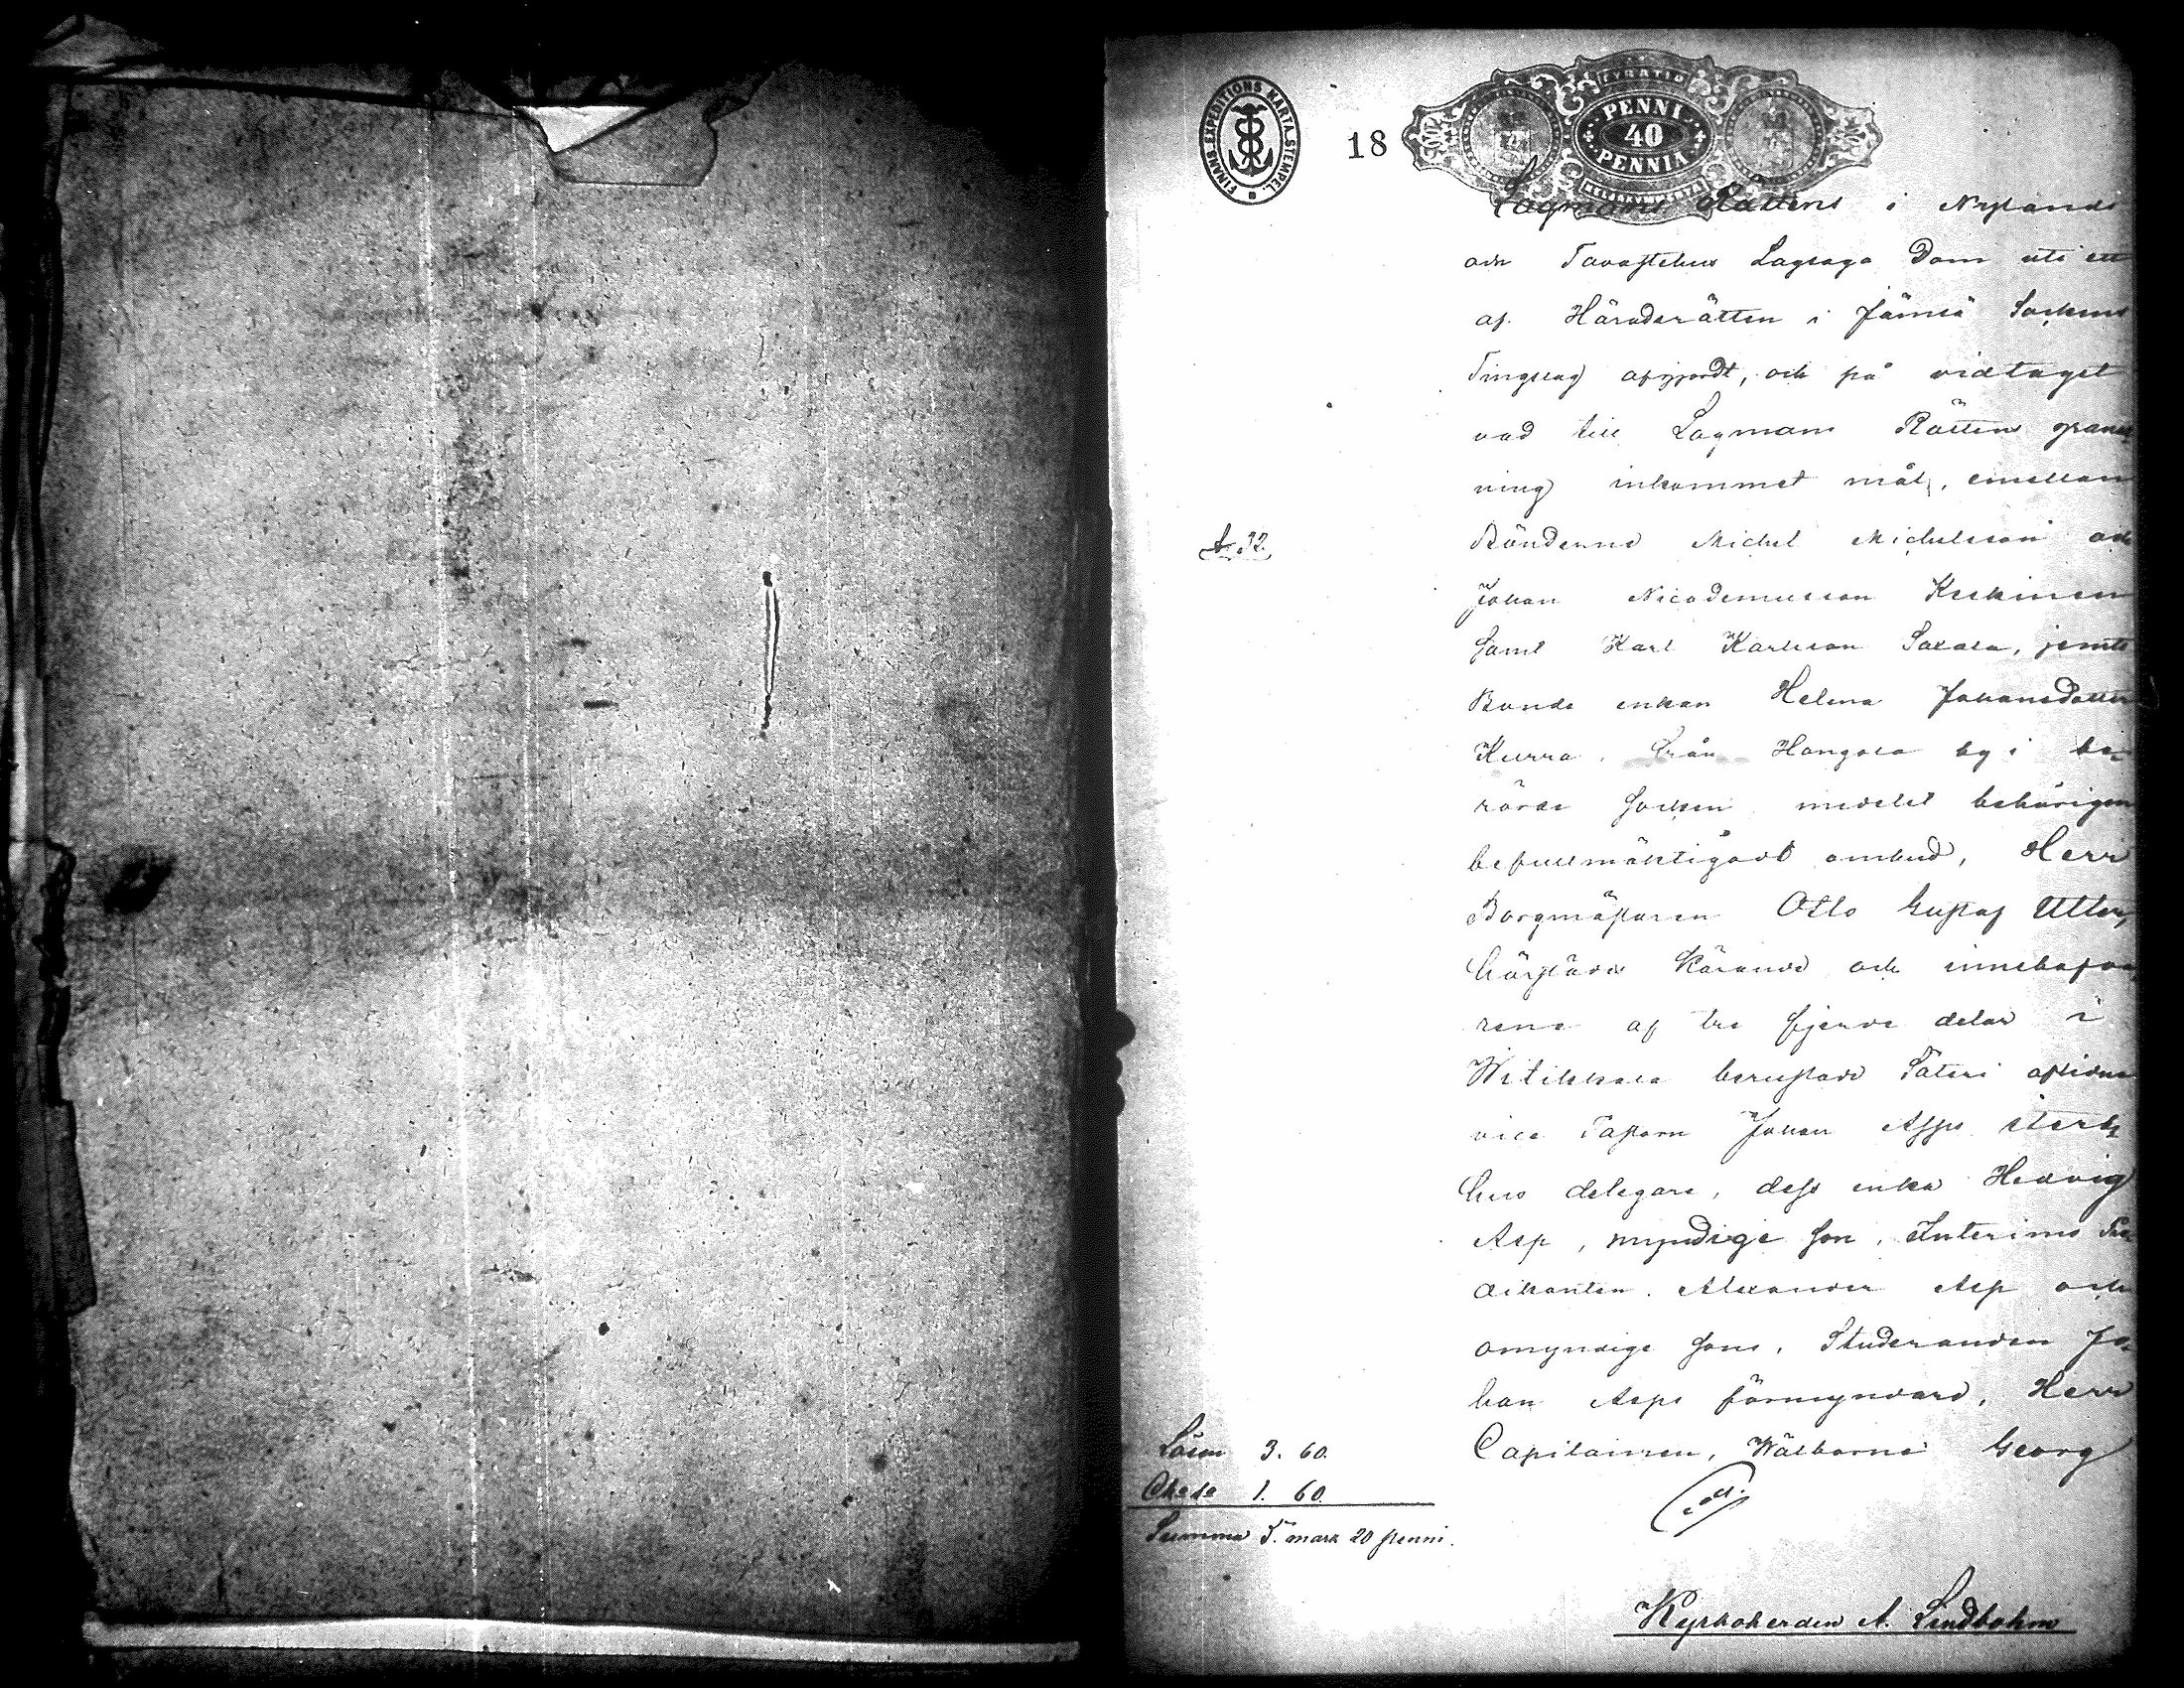 FINANS EXPEDITIONS KARTA STEMPEL
18
FYRATIO
PENNI
40
PENNIÄ
Lagmans Rättens i Nylands
och Tavastehus Lagsaga Dom uti ett
af Häradsrätten i Jämsä Sockens
Tingslag afgjordt, och på vidtaget
vad till Lagmans Rättens gransk
ning inkommet mål, emellan
№ 32.
Bönderne Michel Michelsson och
Johan Nicodemusson Keskinen
samt Karl Karlsson Saxala, jemte
Bonde enkan Helena Johansdotter
Kurra, från Hangola by i be-
rörde Socken medelst behörigen
befullmäktigadt ombud, Herr
Borgmästaren Otto Gustaf Utter,
härstädes Kärande och innehafva
rene af tre fjerde delar i
Witikkala benystade Säteri aflidne
vice Pastorn Johan Asps sterb-
hus delegare, dess enka Hedvig
Asp, myndige son, Interims Pre-
dikanten Alexander Asp och
omyndige sons, Studeranden Jo-
han Asps förmyndare, Herr
Capitainen, Wälborne Georg
Coll.
Lösen 3. 60.
Chesa 1. 60.
Summa 5. mark 20 penni.
Kyrkoherden A. Lindbohm